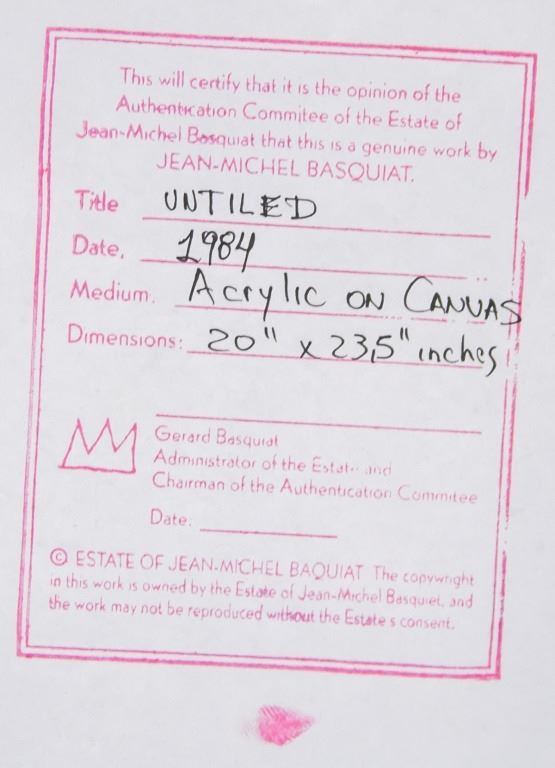 This will certify that it is the opinion of the
Authentication Commitee of the Estate of
Jean-Michel Basquiat that this is a genuine work by
JEAN-MICHEL BASQUIAT.
Title UNTILED
Date, 1984
Medium. Acrylic ON CANVAS
Dimensions: 20" x 23,5" inches
Gerard Basquiat
Administrator of the Estate and
Chairman of the Authentication Commitee
Date:
© ESTATE OF JEAN-MICHEL BAQUIAT The copywright
in this work is owned by the Estate of Jean-Michel Basquiet, and
the work may not be reproduced without the Estate s consent.